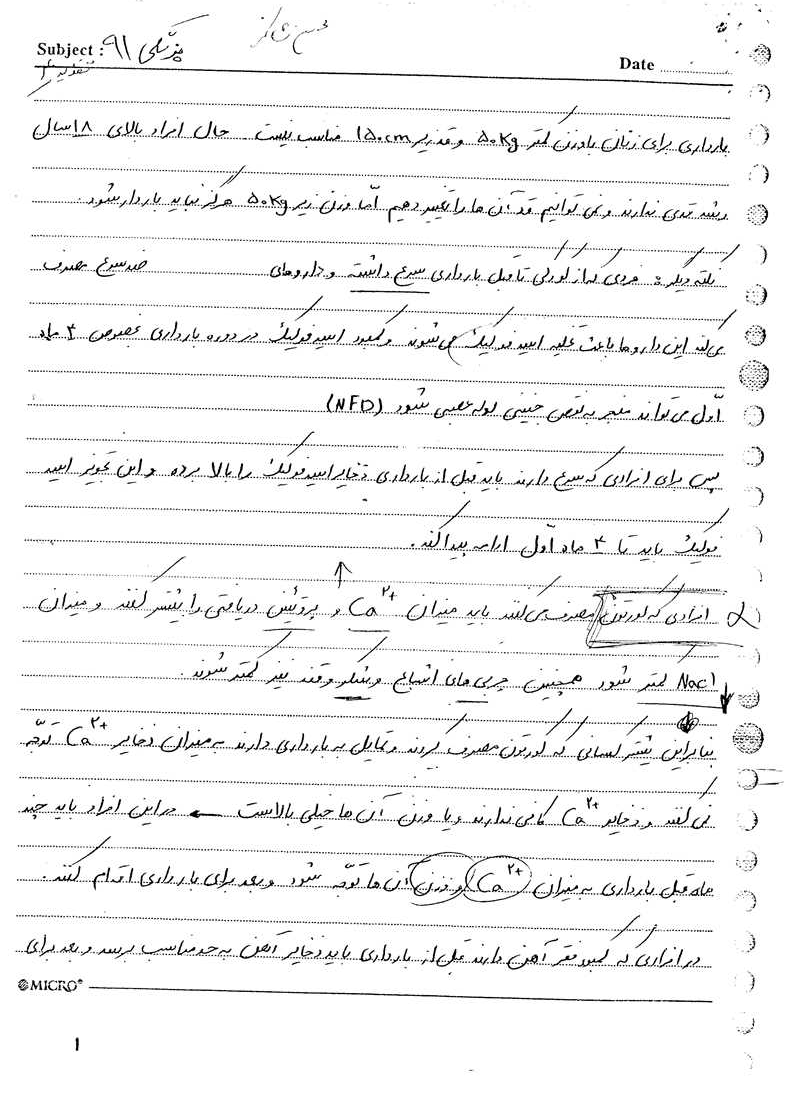 Subject : پزشکی ۹۱
Date
تغذیه
بارداری برای زنان با وزن کمتر ۵۰Kg و قد زیر ۱۵۰cm مناسب نیست. حال افراد بالای ۱۸ سال
رشد قدی ندارند و نمی توانیم قد آن ها را تغییر دهیم امّا وزن زیر ۵۰Kg هرگز نباید باردار شود.
نکته دیگر : فردی که از کودکی تا قبل بارداری سرع داشته و داروهای ضد سرع مصرف
می کند این داروها باعث تخلیه اسید فولیک می شوند و کمبود اسید فولیک در دوره بارداری بخصوص ۳ ماه
اوّل می تواند منجر به نقص جنینی لوله عصبی شود (NFD)
پس برای افرادی که سرع دارند باید قبل از بارداری ذخایر اسید فولیک را بالا برده و این تجویز اسید
فولیک باید تا ۳ ماه اوّل ادامه پیدا کند.
افرادی که کورتون مصرف می کنند باید میزان Ca²⁺ و پروتئین دریافتی را بیشتر کنند و میزان
NaCl کمتر شود همچنین چربی های اشباع و شکر و قند نیز کمتر شوند.
بنابراین بیشتر کسانی که کورتون مصرف کردند و تمایل به بارداری دارند به میزان ذخایر Ca²⁺ توجّه
نمی کنند و ذخایر Ca²⁺ کافی ندارند و یا وزن آن ها خیلی بالاست ← در این افراد باید چند
ماه قبل بارداری به میزان Ca²⁺ و وزن آن ها توجّه شود و بعد برای بارداری اقدام کنند.
در افرادی که کمبود فقر آهن دارند قبل از بارداری باید ذخایر آهن به حد مناسب برسد و بعد برای
MICRO
1